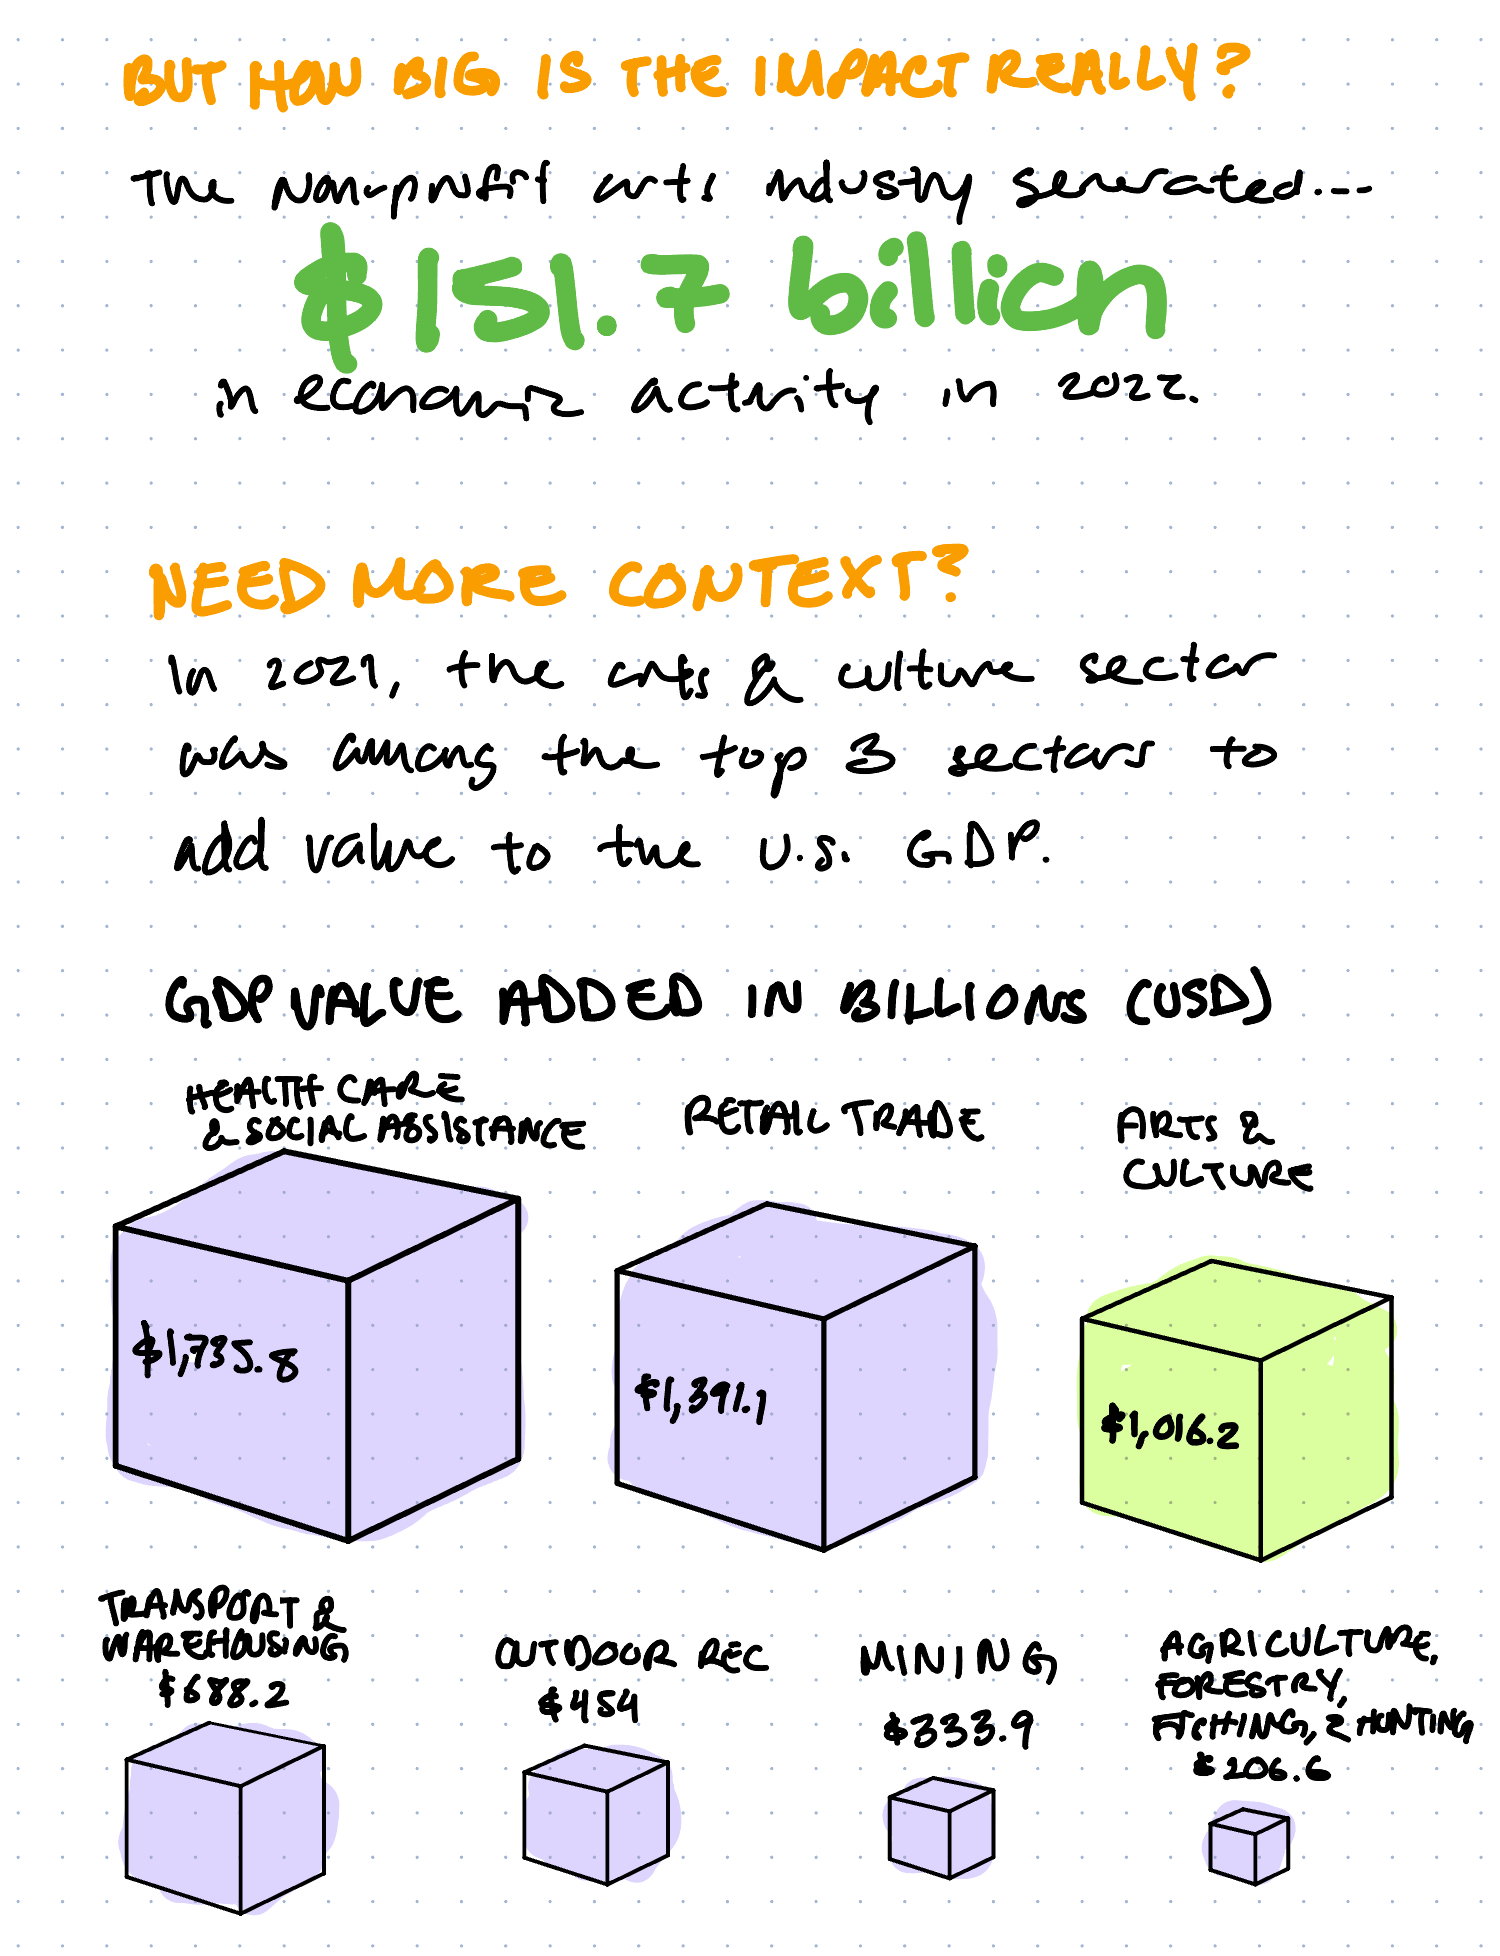 BUT HOW BIG IS THE IMPACT REALLY?
The non-profit arts industry generated...
$151.7 billion
in economic activity in 2022.
NEED MORE CONTEXT?
In 2021, the arts & culture sector
was among the top 3 sectors to
add value to the U.S. GDP.
GDP VALUE ADDED IN BILLIONS (USD)
HEALTH CARE
& SOCIAL ASSISTANCE
$1,735.8
RETAIL TRADE
$1,391.1
ARTS &
CULTURE
$1,016.2
TRANSPORT &
WAREHOUSING
$688.2
OUTDOOR REC
$454
MINING
$333.9
AGRICULTURE,
FORESTRY,
FISHING, & HUNTING
$206.6